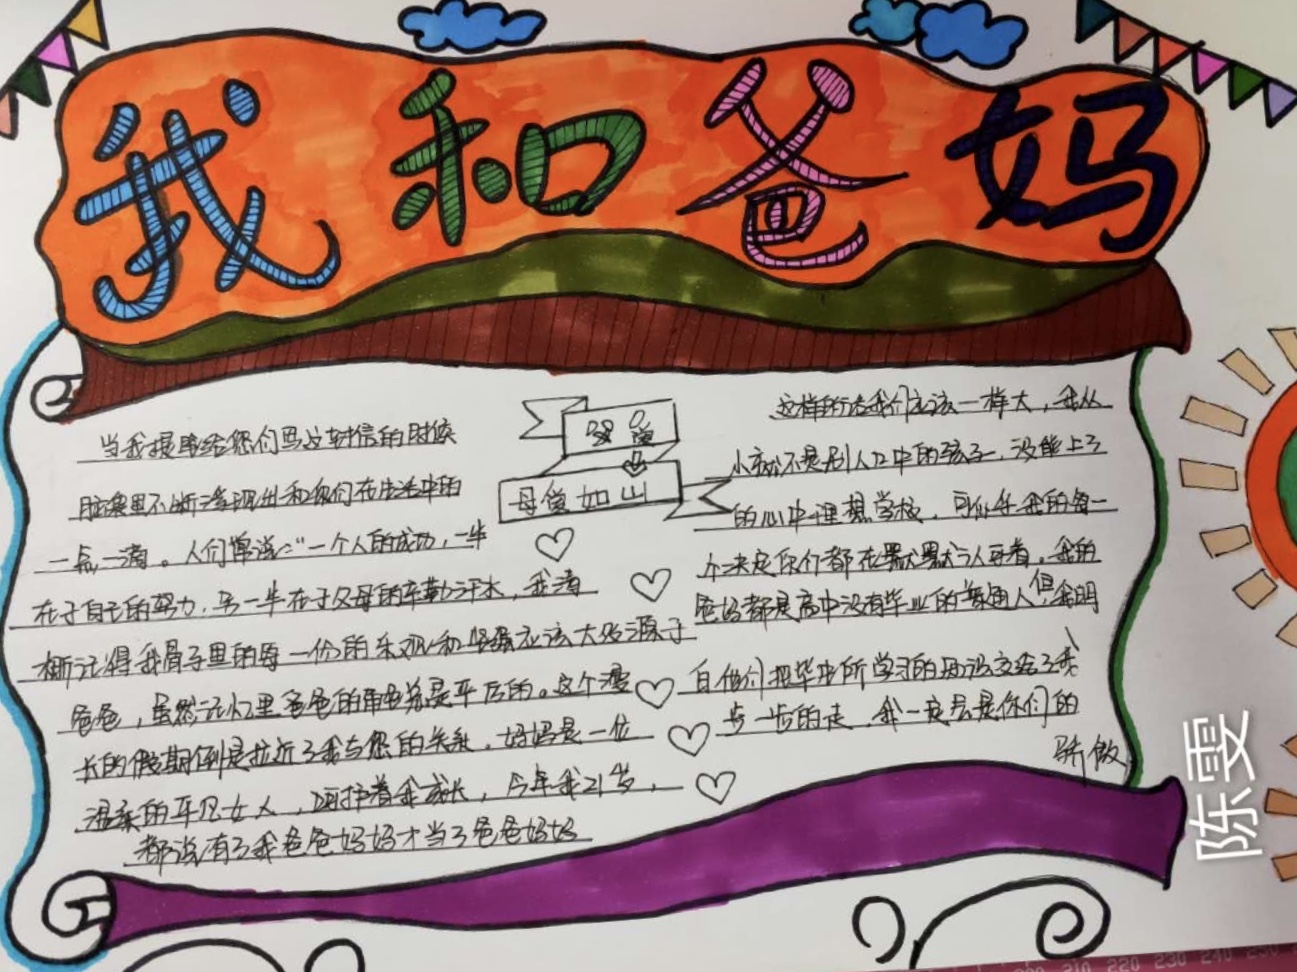 我和爸妈
当我提笔给您们写这封信的时候
脑海里不断涌现出和你们在生活中的
一点一滴。人们常说:"一个人的成功,一半
在于自己的努力,另一半在于父母的辛勤汗水,我清
晰记得我骨子里的每一份的乐观和坚强应该大致源于
爸爸,虽然记忆里爸爸的事业总是平反的。这个漫
长的假期倒是拉近了我与您的关系。妈妈是一位
温柔的平凡女人,呵护着我成长,今年我21岁,
都说有了我爸爸妈妈才当了爸爸妈妈
母爱如山
这样的话我们应该一样大,我从
小就不是别人口中的孩子,没能上了
的心中理想学校,可似乎我的每一
个决定你们都在默默认可着。我的
爸妈都是高中没有毕业的普通人但我明
白他们把毕生所学习的知识交给了我
步一步的走,我一定会是你们的
骄傲
陈雯
210 220 230 240